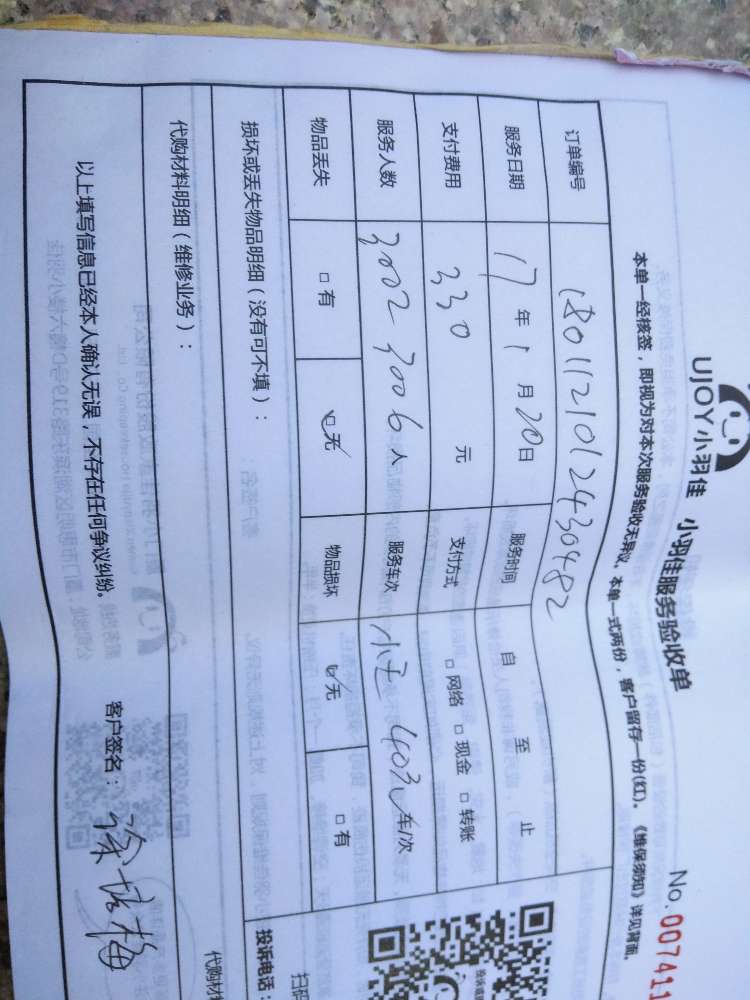 UJOY小羽佳
小羽佳服务验收单
No.007411
本单一经核签，即视为对本次服务验收无异议、本单一式两份，客户留存一份(红)。《维保须知》详见背面。
订单编号 1801121012430482
服务日期 17年1月20日 服务时间 自 至 止
支付费用 330元 支付方式 □网络 □现金 □转账
服务人数 3002 3006人 服务车次 403 车/次
物品丢失 □有 □无 物品损坏 □无 □有
损坏或丢失物品明细（没有可不填）：
投诉电话：
扫码
代购材料明细（维修业务）：
代购材
以上填写信息已经本人确认无误，不存在任何争议纠纷。 客户签名：